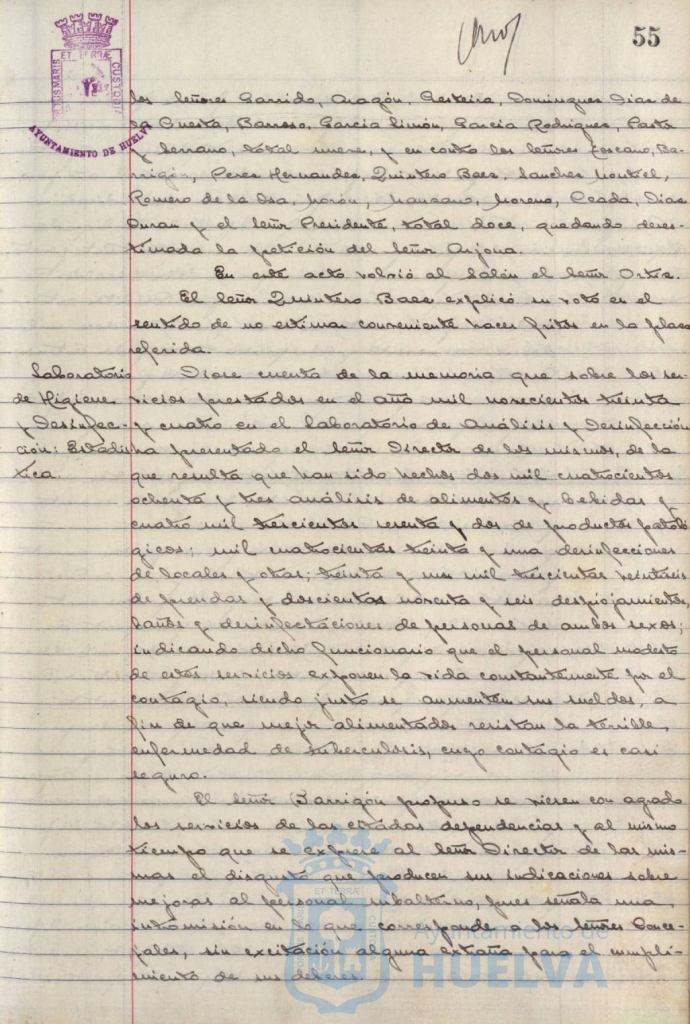 55
PORTUS MARIS ET TERRÆ CUSTODIA
AYUNTAMIENTO DE HUELVA
los Señores Garrido, Aragón, Gesteira, Dominguez Diaz de
la Cuesta, Barroso, Garcia Limón, Garcia Rodriguez, Pastr
y Serrano, total nueve, y en contra los Señores Toscano, Ba-
rrigón, Perez Hernandez, Quintero Baez, Sanchez Montiel,
Romero de la Osa, Morón, Manzano, Moreno, Ceada, Diaz
Duran y el Señor Presidente, total doce, quedando deses-
timada la petición del Señor Arjona.
En este acto volvió al Salón el Señor Ortiz.
El Señor Quintero Baez explicó su voto en el
sentido de no estimar conveniente hacer fritos en la plaza
referida.
Laboratorio
de Higiene
y Desinfec-
ción: Estadis
tica.
Diose cuenta de la memoria que sobre los ser-
vicios prestados en el año mil novecientos treinta
y cuatro en el Laboratorio de Análisis y Desinfección
ha presentado el Señor Director de los mismos, de la
que resulta que han sido hechos dos mil cuatrocientos
ochenta y tres análisis de alimentos y bebidas y
cuatro mil trescientos sesenta y dos de productos patoló
gicos; mil cuatrocientos treinta y una desinfecciones
de locales y otras; treinta y un mil trescientas veintiseis
de prendas y doscientas noventa y seis despiojamientos,
baños y desinfectaciones de personas de ambos sexos;
indicando dicho funcionario que el personal modesto
de estos servicios exponen la vida constantemente por el
contagio, siendo justo se aumenten sus sueldos, a
fin de que mejor alimentados resistan la terrible
enfermedad de tuberculosis, cuyo contagio es casi
seguro.
El Señor Barrigón propuso se viesen con agrado
los servicios de las citadas dependencias y al mismo
tiempo que se exprese al Señor Director de las mis-
mas el disgusto que producen sus indicaciones sobre
mejoras al personal subalterno, pues señala una
intromisión en lo que corresponde a los Señores Conce-
jales, sin excitación alguna extraña para el cumpli-
miento de sus deberes.
Ayuntamiento de
HUELVA